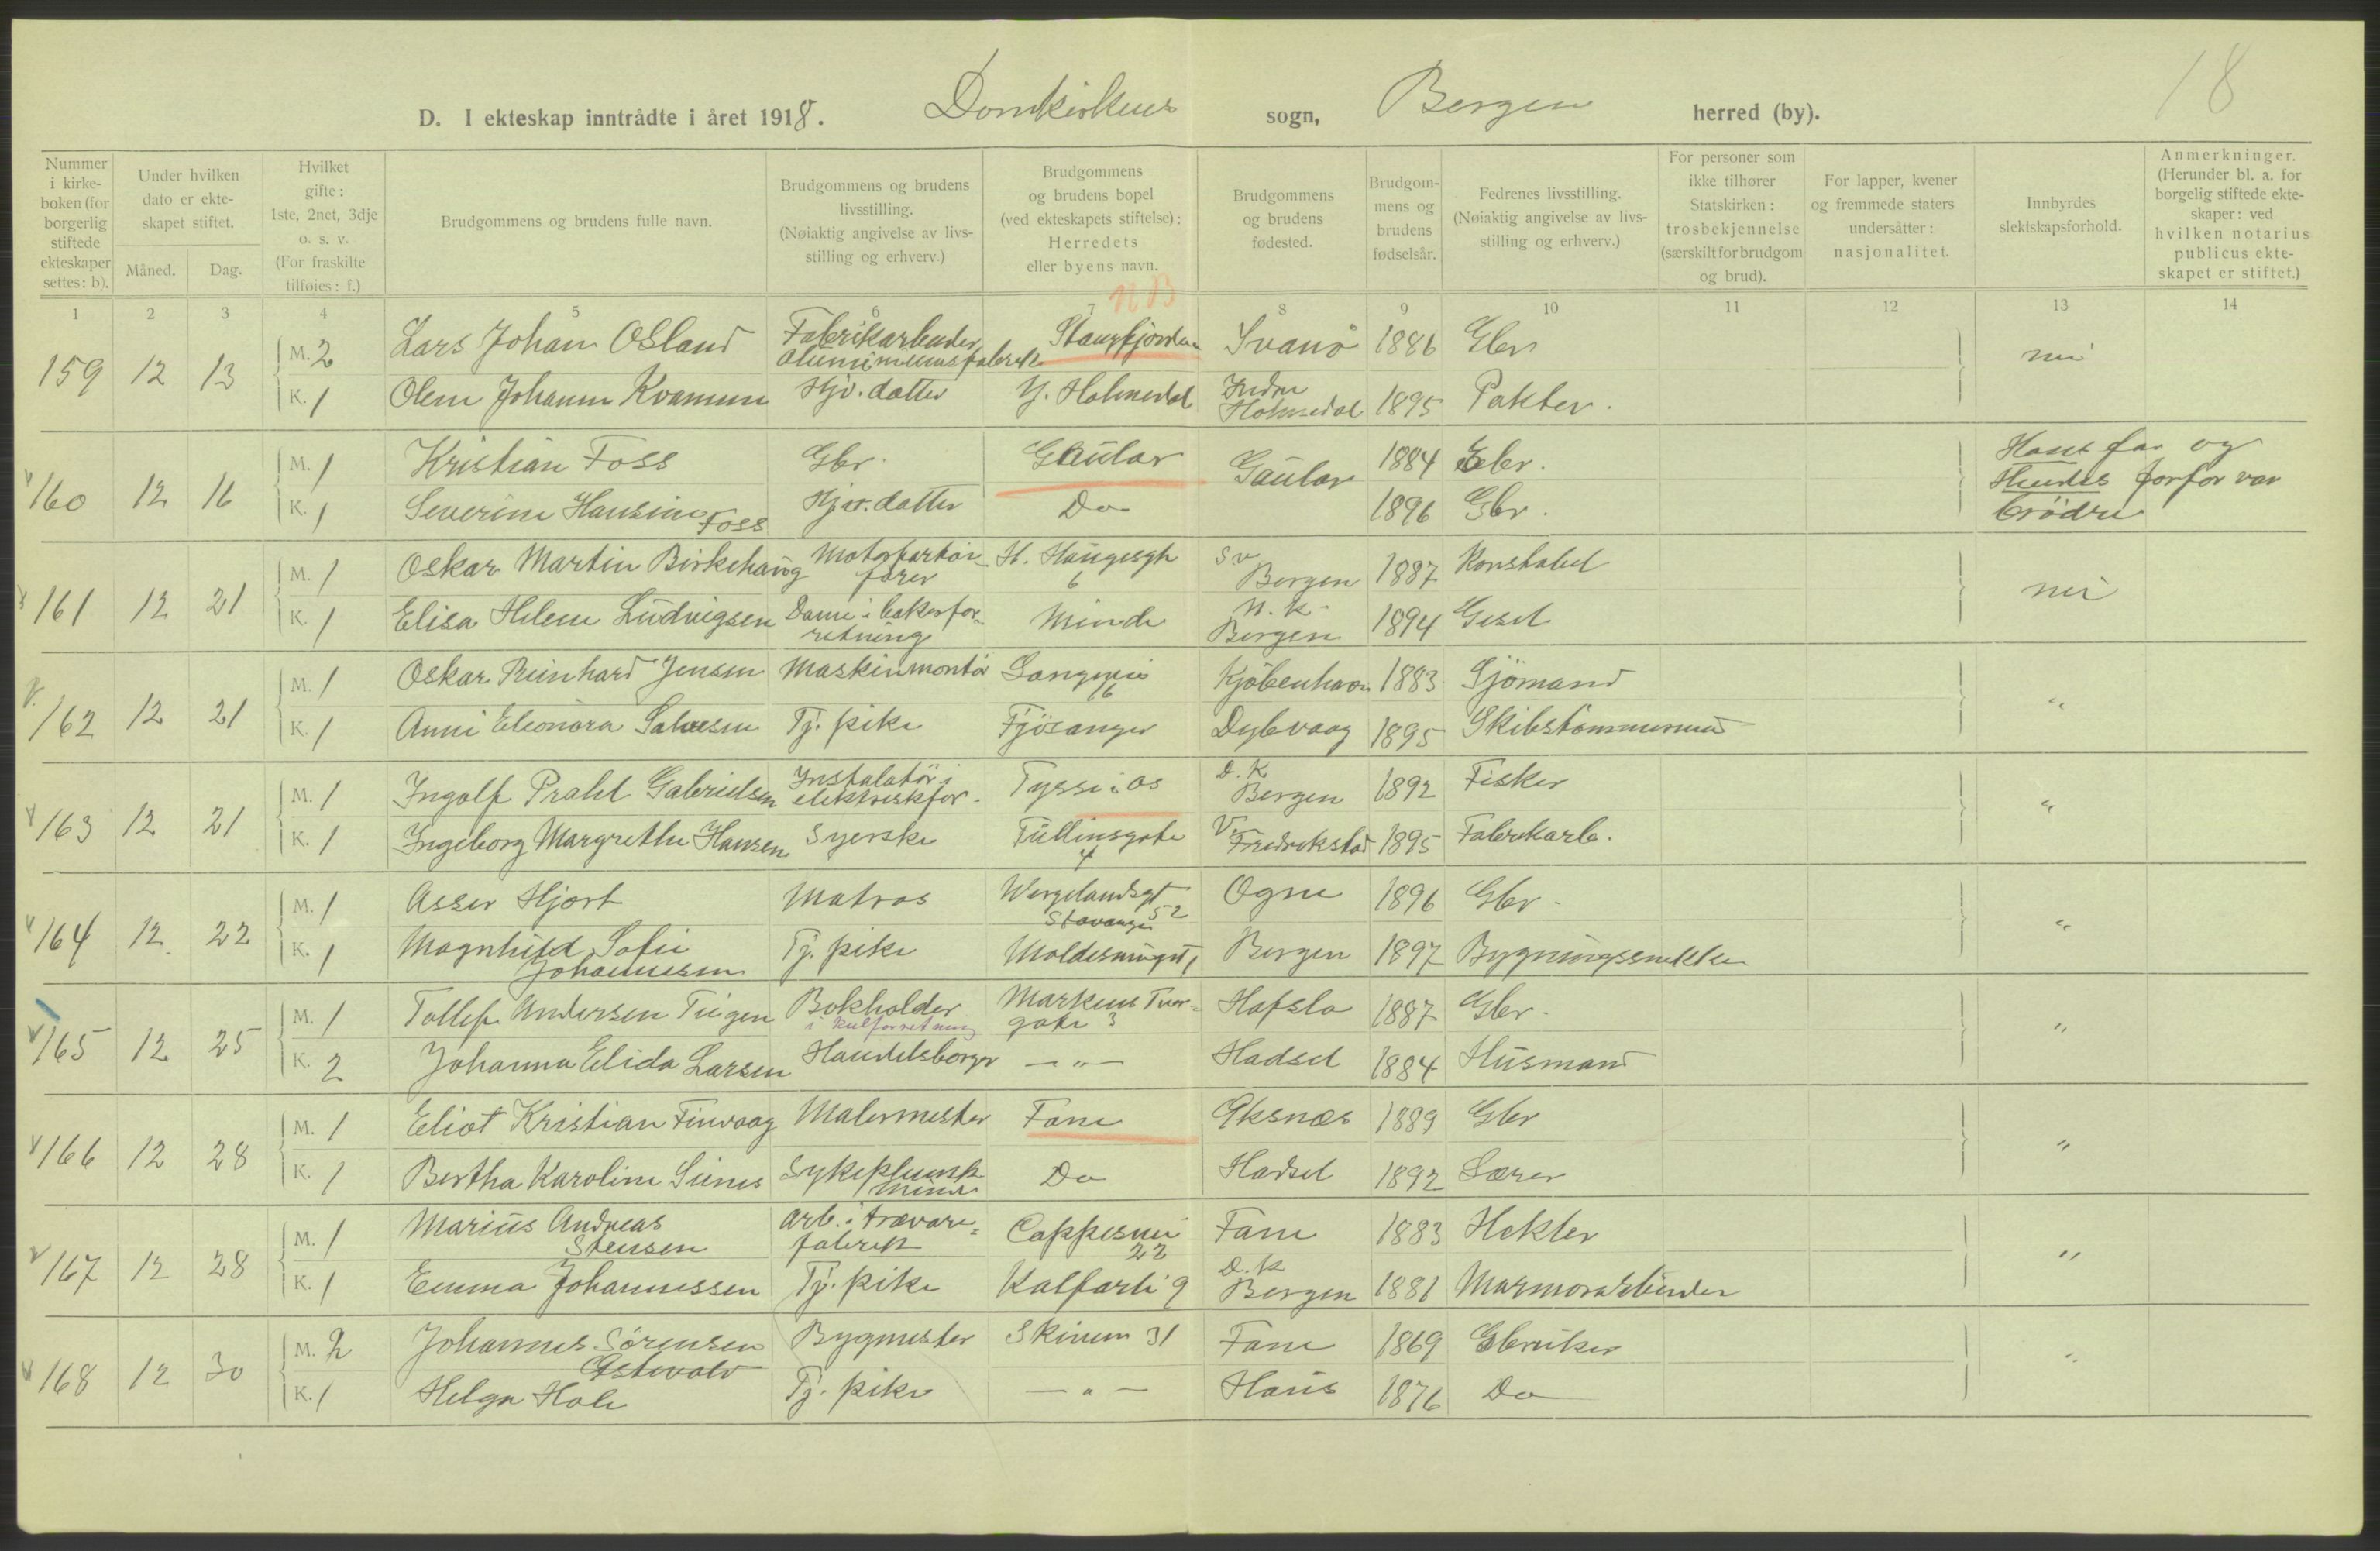 18
D. I ekteskap inntrådte i året 1918. Domkirkens sogn, Bergen herred (by).
Nummer i kirkeboken (for borgerlig stiftede ekteskaper settes: b).
Under hvilken dato er ekteskapet stiftet.
Måned. Dag.
Hvilket gifte: 1ste, 2net, 3dje o. s. v. (For fraskilte tilføies: f.)
Brudgommens og brudens fulle navn.
Brudgommens og brudens livsstilling. (Nøiaktig angivelse av livsstilling og erhverv.)
Brudgommens og brudens bopel (ved ekteskapets stiftelse): Herredets eller byens navn.
Brudgommens og brudens fødested.
Brudgommens og brudens fødselsår.
Fedrenes livsstilling. (Nøiaktig angivelse av livsstilling og erhverv.)
For personer som ikke tilhører Statskirken: trosbekjennelse (særskilt for brudgom og brud).
For lapper, kvener og fremmede staters undersåtter: nasjonalitet.
Innbyrdes slektskapsforhold.
Anmerkninger. (Herunder bl. a. for borgelig stiftede ekteskaper: ved hvilken notarius publicus ekteskapet er stiftet.)
NB
1 2 3 4 5 6 7 8 9 10 11 12 13 14
159 12 13 M. 2 Lars Johan Osland Fabrikarbeider Aluminiumsfabrik Stangfjorden Svanö 1886 Gbr nei
K. 1 Olene Johanne Kvamme Hjv. datter Y. Holmedal Indre Holmedal 1895 Pakter.
160 12 16 M. 1 Kristian Foss Gbr. Gaular Gaular 1884 Gbr. Hans far og Hendes farfar var brödre
K. 1 Severine Hansine Foss Hjv. datter Do 1896 Gbr.
161 12 21 M. 1 Oskar Martin Birkehaug Motorfartöifører H. Haugesgt 6 Bergen 1887 Konstabel nei
K. 1 Elisa Helene Ludvigsen Dame i bakerforretning Minde N. K. Bergen 1894 Gesel
162 12 21 M. 1 Oskar Reinhard Jensen Maskinmontör 16 Kjöbenhavn 1883 Sjömand "
K. 1 Anni Eleonora Salvesen Tj. pike Fjösanger Dybvaag 1895 Skibstömmermand
163 12 21 M. 1 Ingolf Prahl Gabrielsen Instalatör i elektriskfor. Tysse i Os D. K Bergen 1892 Fisker "
K. 1 Ingeborg Margrethe Hansen Syerske Tullinsgate 4 Fredrikstad 1895 Fabrikarb.
164 12 22 M. 1 Asser Hjort Matros Wergelandsgt 52 Stavanger Ogne 1896 Gbr. "
K. 1 Magnhild Sofie Johannesen Tj. pike Bergen 1897 Bygningssnekker
165 12 25 M. 1 Tollef Andersen Teigen Bokholder i kulforretning Markens Tvergate 3 Hafslo 1887 Gbr. "
K. 2 Johanna Elida Larsen Handelsborger — " — Hadsel 1884 Husmand
166 12 28 M. 1 Eliot Kristian Finvaag Malermester Fane Öksnes 1889 Gbr "
K. 1 Bertha Karoline Sines Do Hadsel 1892 Lærer
167 12 28 M. 1 Marius Andreas Stensen Arb. i trævarefabrik Cappesvei 22 Fane 1883 Hekler "
K. 1 Emma Johannessen Tj. pike Kalfarli 9 D. K Bergen 1881 Marmorarbeider
168 12 30 M. 2 Johannes Sörensen Östevold Bygmester Skiven 31 Fane 1869 Gbruker "
K. 1 Helga Hole Tj. pike — " — Haus 1876 Do